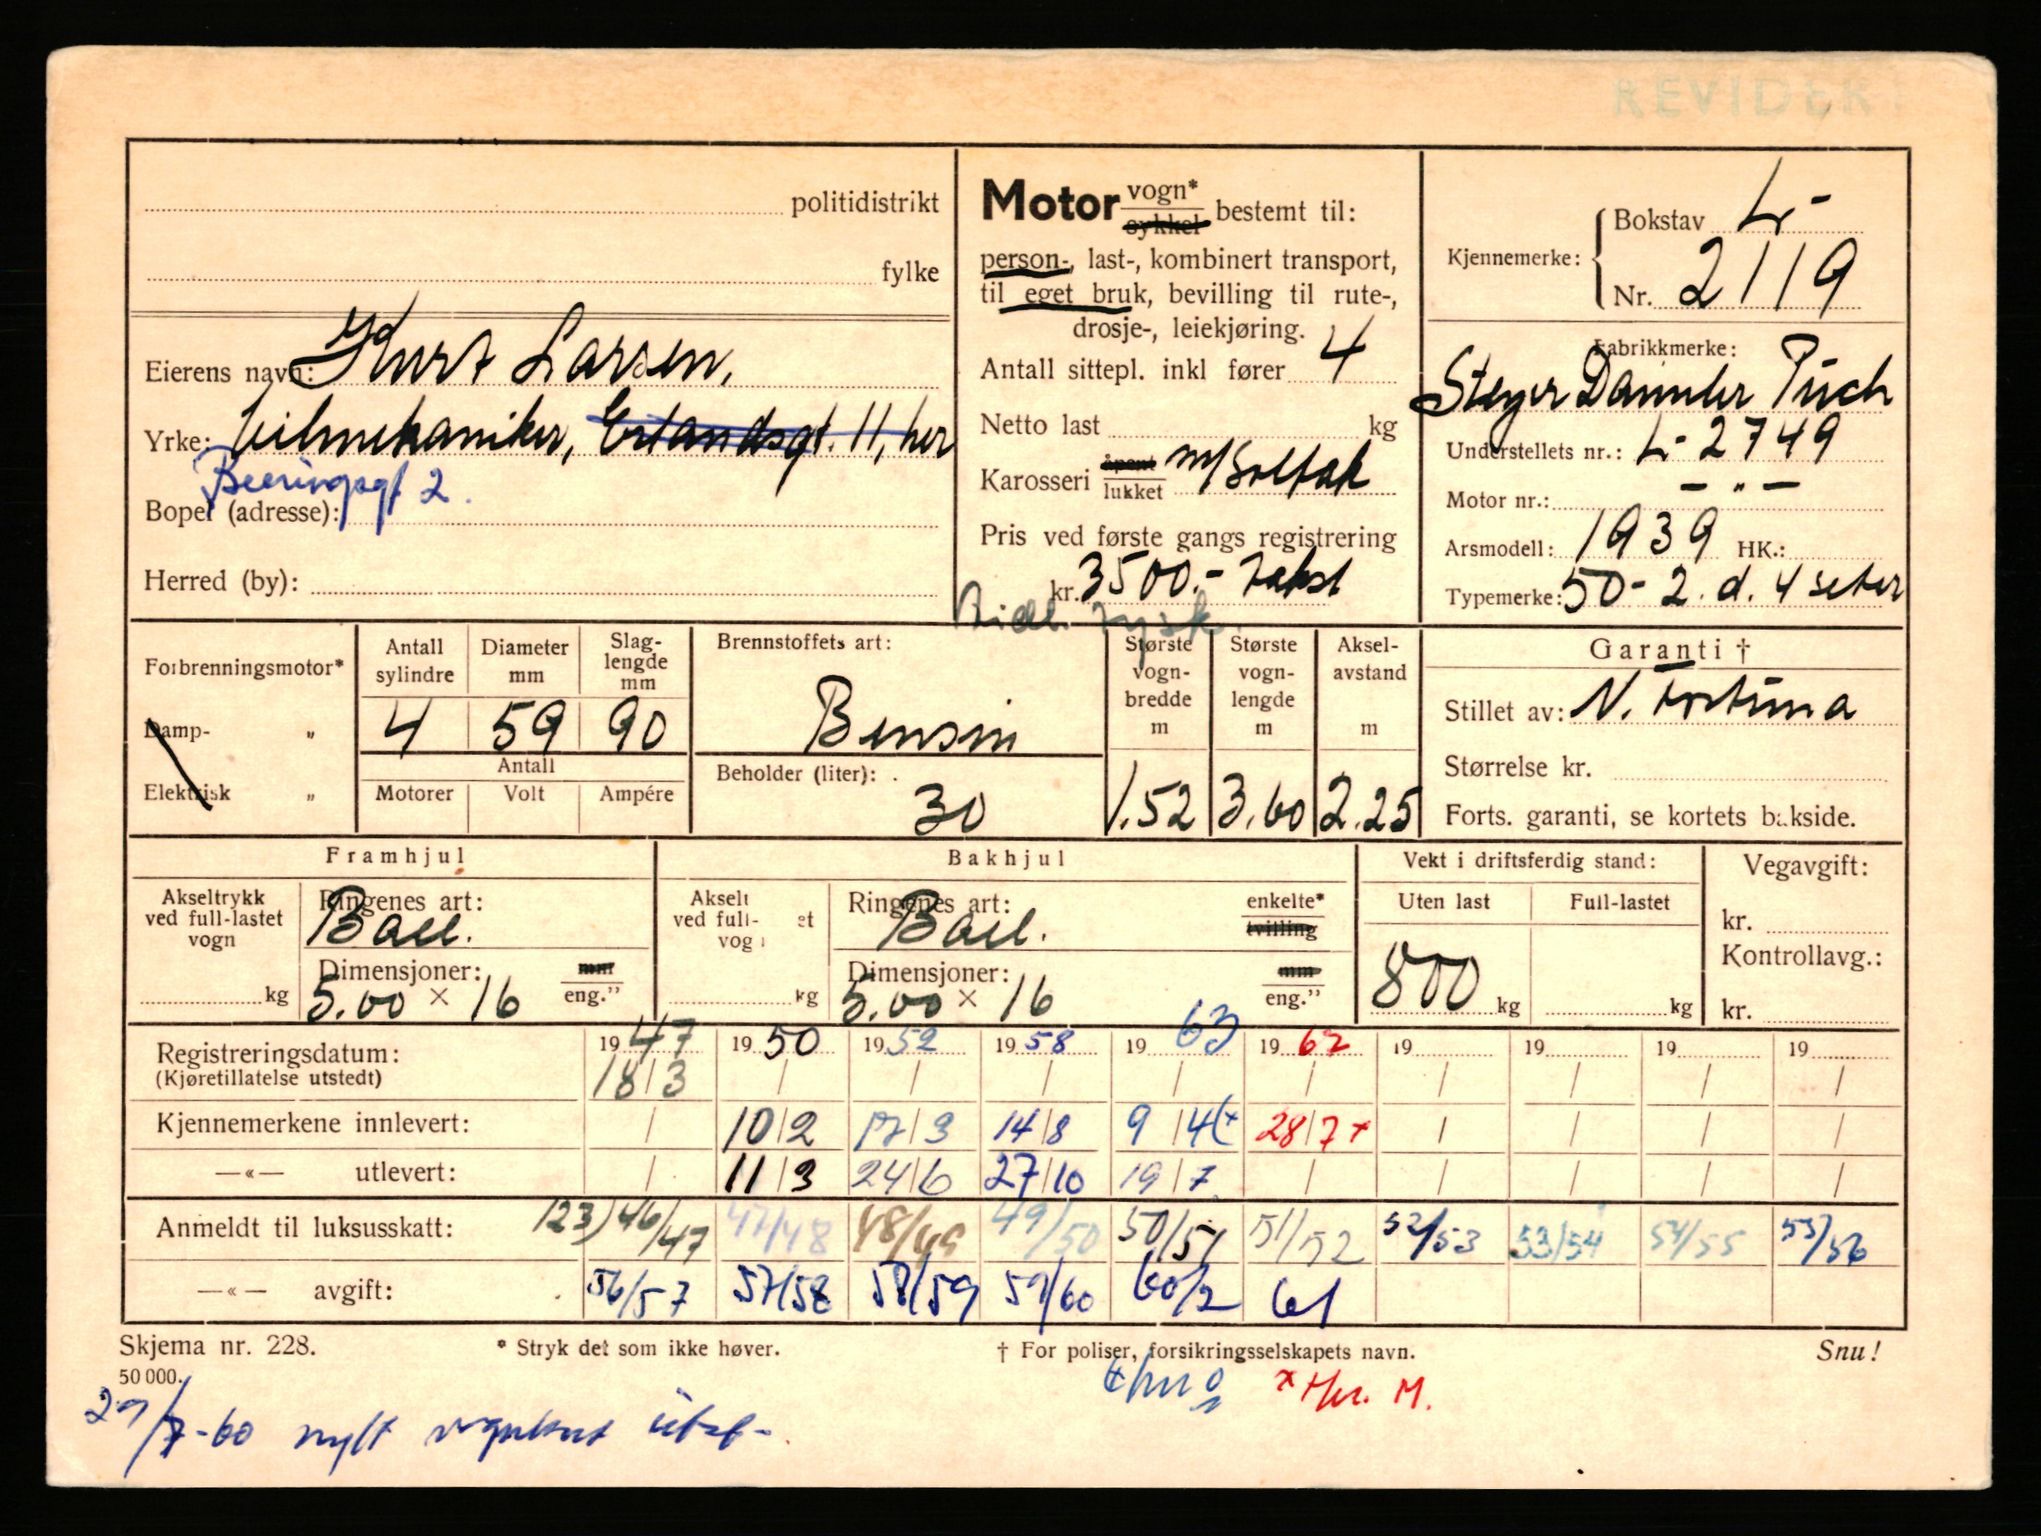 REVIDER
politidistrikt
fylke
Eierens navn: Kurt Larsen,
Yrke: bilmekaniker, Erlandsgt. 11, her
Beeringsgt 2.
Bopel (adresse):
Herred (by):
Motor vogn* sykkel bestemt til:
person-, last-, kombinert transport,
til eget bruk, bevilling til rute-,
drosje-, leiekjøring.
Antall sittepl. inkl fører 4
Netto last kg
Karosseri åpent lukket m/soltak
Pris ved første gangs registrering
kr. 3500.- takst
tysk.
Kjennemerke: Bokstav L-
Nr. 2119
Fabrikkmerke:
Steyer Daimler Puch
Understellets nr.: L-2749
Motor nr.: - " -
Arsmodell: 1939 HK.:
Typemerke: 50-2.d. 4 seter
Forbrenningsmotor*
Damp- „
Elektrisk „
Antall sylindre 4
Diameter mm 59
Slag-lengde mm 90
Antall
Motorer Volt Ampére
Brennstoffets art:
Bensin
Beholder (liter):
30
Største vogn-bredde m 1.52
Største vogn-lengde m 3.60
Aksel-avstand m 2.25
Garanti †
Stillet av: N. Fortuna
Størrelse kr.
Forts. garanti, se kortets bakside.
Framhjul
Akseltrykk ved full-lastet vogn kg
Ringenes art: Ball.
Dimensjoner: mm eng.”
5.00 × 16
Bakhjul
Akselt ved full- et vog kg
Ringenes art: Ball. enkelte* tvilling
Dimensjoner: mm eng.”
5.00 × 16
Vekt i driftsferdig stand:
Uten last Full-lastet
800 kg kg
Vegavgift:
kr.
Kontrollavg.:
kr.
Registreringsdatum: 1947 1950 1952 1958 1963 1967 19 19 19 19
(Kjøretillatelse utstedt) 18/3 / / / / / / / / /
Kjennemerkene innlevert: / 10/2 17/3 14/8 9/4 28/7 x / / / /
—«— utlevert: / 11/3 24/6 27/10 19/7 / / / / /
Anmeldt til luksusskatt: 123) 46/47 47/48 48/49 49/50 50/51 51/52 52/53 53/54 54/55 55/56
—«— avgift: 56/57 57/58 58/59 59/60 60/2 61
Skjema nr. 228. * Stryk det som ikke høver. † For poliser, forsikringsselskapets navn. Snu!
50 000.
29/7-60 nytt vognkort utst-